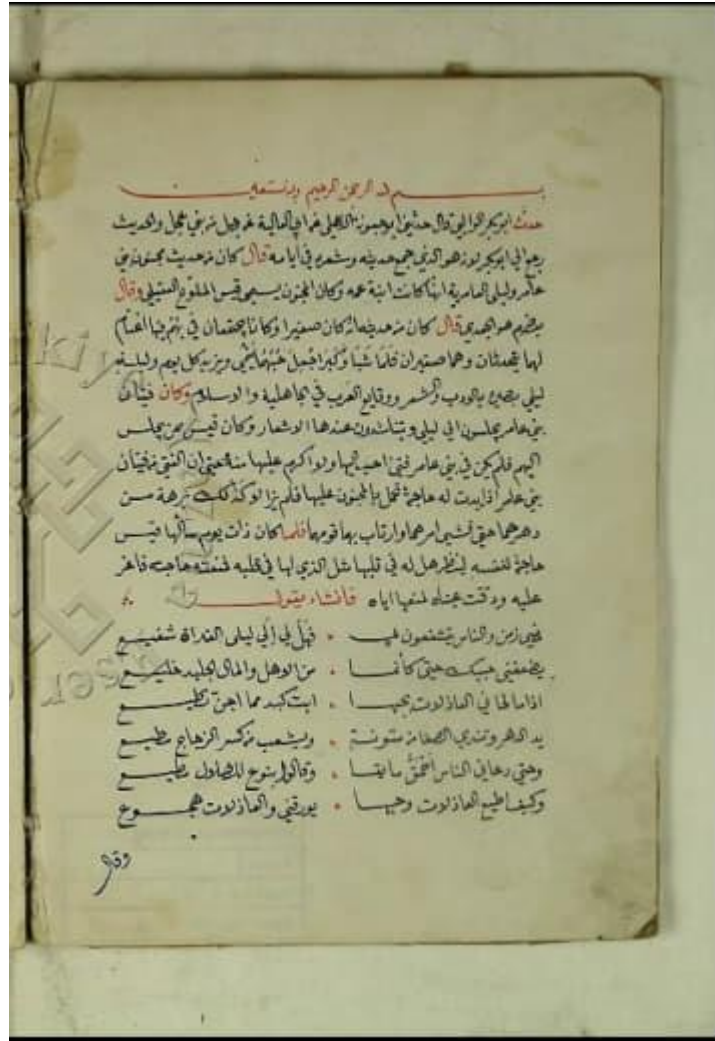 بسم الله الرحمن الرحيم وبه نستعين
حدث ابو بكر الوالبي قال حدثني ابو الباهلي عن ابي العالية عن رجل من بني عجل والحديث
رجع الي ابو بكر لانه هو الذي جمع حديثه وشعره في ايامه قال كان من حديث مجنون بني
عامر وليلى العامرية انها كانت ابنة عمه وكان المجنون يسمى قيس الملوح وقال
بعضهم هو الجعدي قال كان من حديثه انه كان صغيرا وكانا يجتمعان في بهم فيها اغنام
لها يتحدثان وهما صغيران فلما شبا وكبرا فجعل حبهما ينمي ويزيد كل يوم وليلة
ليلى بصيرة بالادب والشعر ووقايع العرب في الجاهلية والاسلام وكان فتيان
بني عامر يجلسون الى ليلى ويتناشدون عندها الاشعار وكان قيس ممن يجلس
اليهم فلم يكن في بني عامر فتى احب اليها ولا اكرم عليها منه حتى ان الفتى من فتيان
بني عامر اذا بدت له حاجة تحمل بالمجنون عليها فلم يزالا كذلك برهة من
دهرهما حتى فشى امرهما وارتاب بها قومهما فلما كان ذات يوم سألها قيس
حاجة لنفسه لينظر هل له في قلبها مثل الذي لها في قلبه فمنعته حاجته فاغر
عليه ودقت عيناه لمنعها اياه فانشاء يقول
مضى زمن والناس يستشفعون بي فهل لي الى ليلى الغداة شفيع
يضعفني حبيك حتى كأنما من الاهل والمال التليد خليع
اذا ما لحاني العاذلات بحبها ابت كبد مما اجن تطيع
يد الدهر الصفا من متونه ويشعب من كسر الزجاج
وحتى دعاني الناس احمق مايقا وقالوا تبوع للضلال مطيع
وكيف اطيع العاذلات وحبها يورقني والعاذلات هجوع
وقال